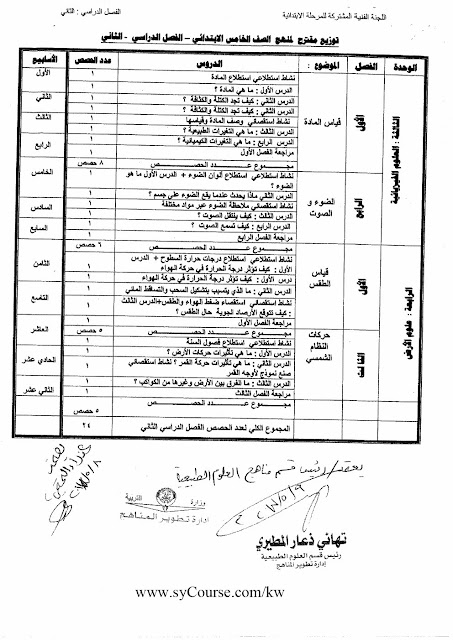 اللجنة الفنية المشتركة للمرحلة الابتدائية
الفصل الدراسي : الثاني
توزيع مقترح لمنهج الصف الخامس الابتدائي – الفصل الدراسي - الثاني
الوحدة الفصل الموضوع : الدروس عدد الحصص الأسابيع
الثالثة : العلوم الفيزيائية
الأول
قياس المادة
نشاط استطلاعي استطلاع المادة ١ الأول
الدرس الأول : ما هي المادة ؟ ١
الدرس الثاني : كيف تجد الكتلة والكثافة ؟ ١ الثاني
الدرس الثاني : كيف تجد الكتلة والكثافة ؟ ١
نشاط استقصائي وصف المادة وقياسها ١ الثالث
الدرس الثالث : ما هي التغيرات الطبيعية ؟ ١
الدرس الرابع : ما هي التغيرات الكيميائية ؟ ١ الرابع
مراجعة الفصل الأول ١
مجموع عدد الحصص ٨ حصص
الرابع
الضوء و الصوت
نشاط استطلاعي استطلاع ألوان الضوء + الدرس الأول ما هو الضوء ؟ ١ الخامس
الدرس الثاني ماذا يحدث عندما يقع الضوء على جسم ؟ ١
نشاط استقصائي ملاحظة الضوء عبر مواد مختلفة ١ السادس
الدرس الثالث : كيف ينتقل الصوت ؟ ١
الدرس الرابع : كيف تسمع الصوت ؟ ١ السابع
مراجعة الفصل الرابع ١
مجموع عدد الحصص ٦ حصص
الرابعة : علوم الأرض
الأول
قياس الطقس
نشاط استطلاعي استطلاع درجات حرارة السطوح + الدرس الأول : كيف تؤثر درجة الحرارة في حركة الهواء ١ الثامن
درس الأول : كيف تؤثر درجة الحرارة في حركة الهواء ١
الدرس الثاني : ما الذي يتسبب بتشكيل السحب والتساقط المائي ١ التاسع
نشاط استقصائي استقصاء ضغط الهواء والطقس+الدرس الثالث : كيف تتوقع الأرصاد الجوية حال الطقس ؟ ١
مراجعة الفصل الأول ١ العاشر
مجموع عدد الحصص ٥ حصص
الثالث
حركات النظام الشمسي
نشاط استطلاعي استطلاع فصول السنة ١
الدرس الأول : ما هي تأثيرات حركات الأرض ؟ ١ الحادي عشر
الدرس الثاني : ما هي تأثيرات حركة القمر ؟ نشاط استقصائي صنع نموذج لأوجه القمر ١
الدرس الثالث : ما الفرق بين الأرض وغيرها من الكواكب ؟ ١ الثاني عشر
مراجعة الفصل الثالث ١
مجموع عدد الحصص ٥ حصص
المجموع الكلي لعدد الحصص الفصل الدراسي الثاني ٢٤
يعتمد / رئيس قسم مناهج العلوم الطبيعية
وزارة التربية
إدارة تطوير المناهج
تهاني ذعار المطيري
رئيس قسم العلوم الطبيعية
إدارة تطوير المناهج
www.syCourse.com/kw